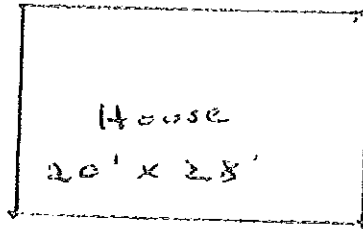 House
20' x 28'